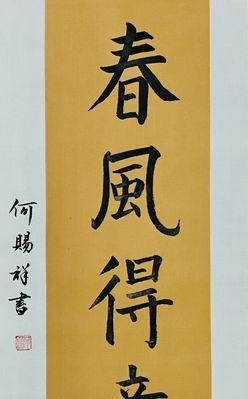 春風得
何賜祥書